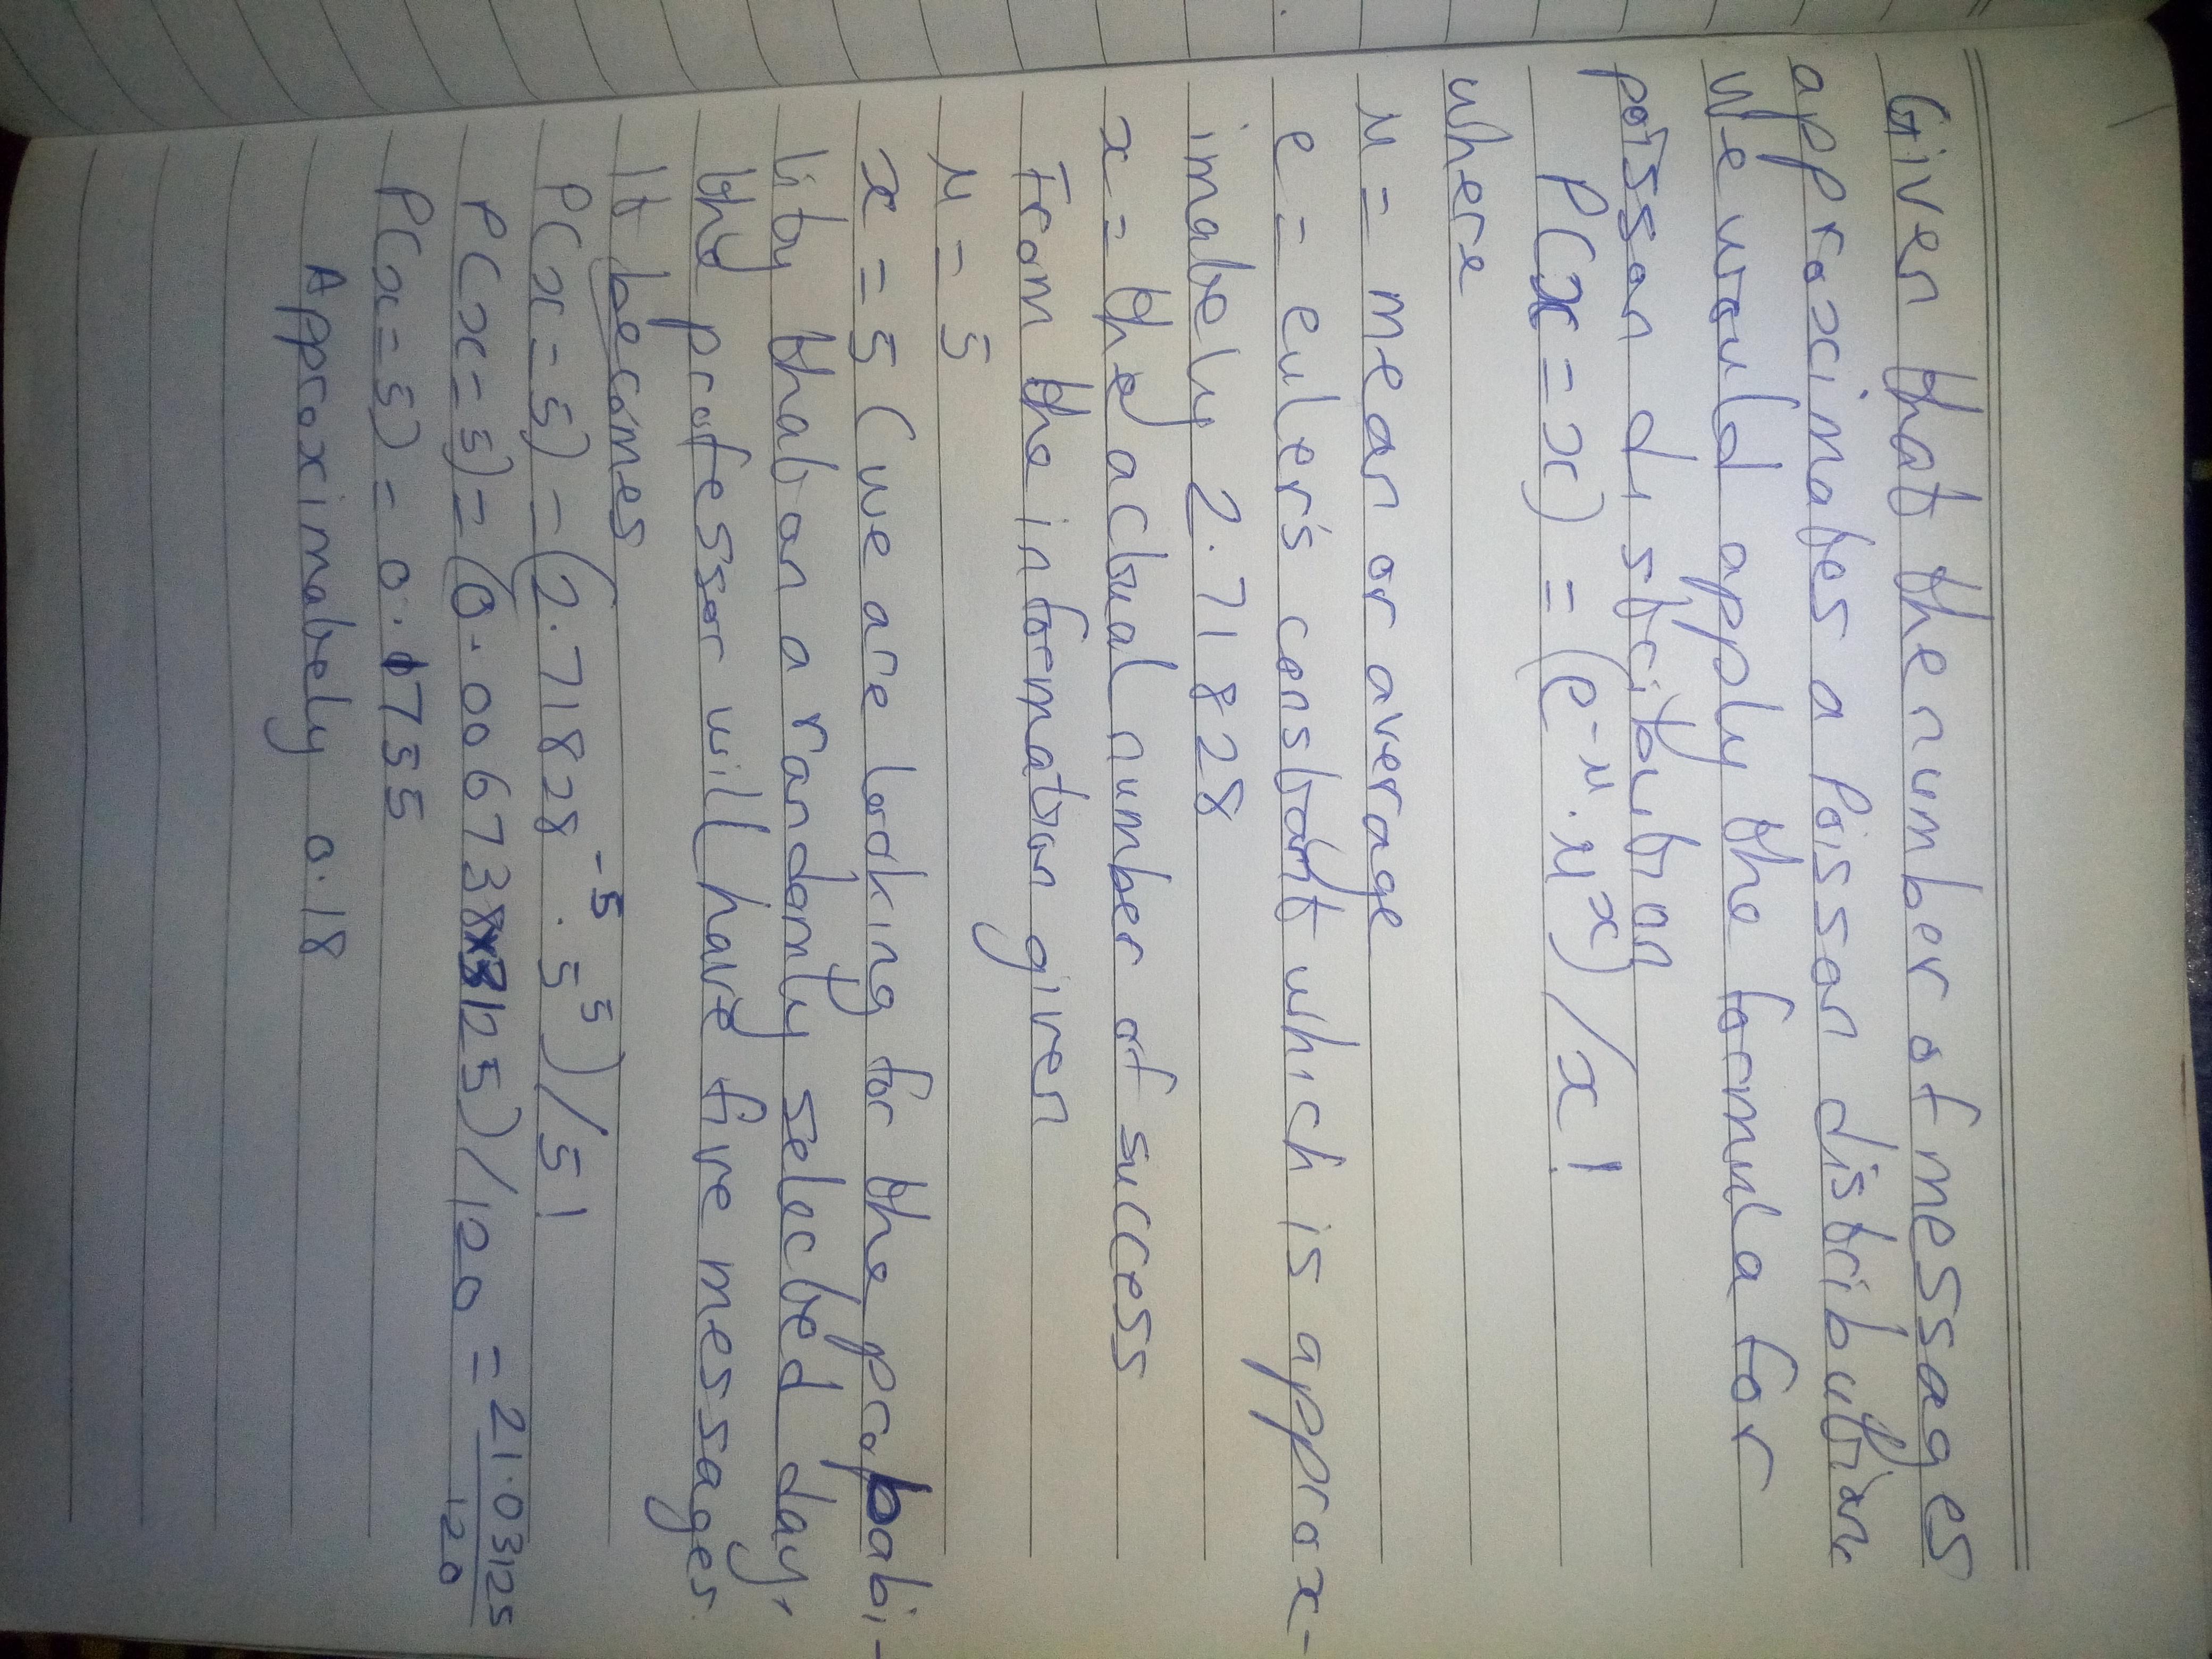 Given that the number of messages
approximates a Poisson distribution.
We would apply the formula for
poisson distribution
P(x = x) = (e⁻ᵘ · μˣ) / x!
where
μ = mean or average
e = euler's constant which is approx-
imately 2.71828
x = the actual number of success
From the information given
μ = 5
x = 5 (we are looking for the probabi-
lity that on a randomly selected day,
the professor will have five messages.
It becomes
P(x = 5) = (2.71828⁻⁵ · 5⁵) / 5!
P(x = 5) = (0.006738 x 3125) / 120 = 21.03125/120
P(x = 5) = 0.1755
Approximately 0.18